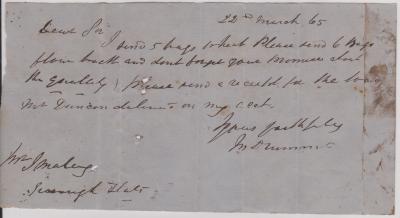 22nd March 65
Dear Sir I
send 5 bags wheat Please send 6 Bags
flour back and dont forget your promise about
the quality Please send a receipt for the
Mr Duncan delivered on my
Yours faithfully
Mr J
Flat